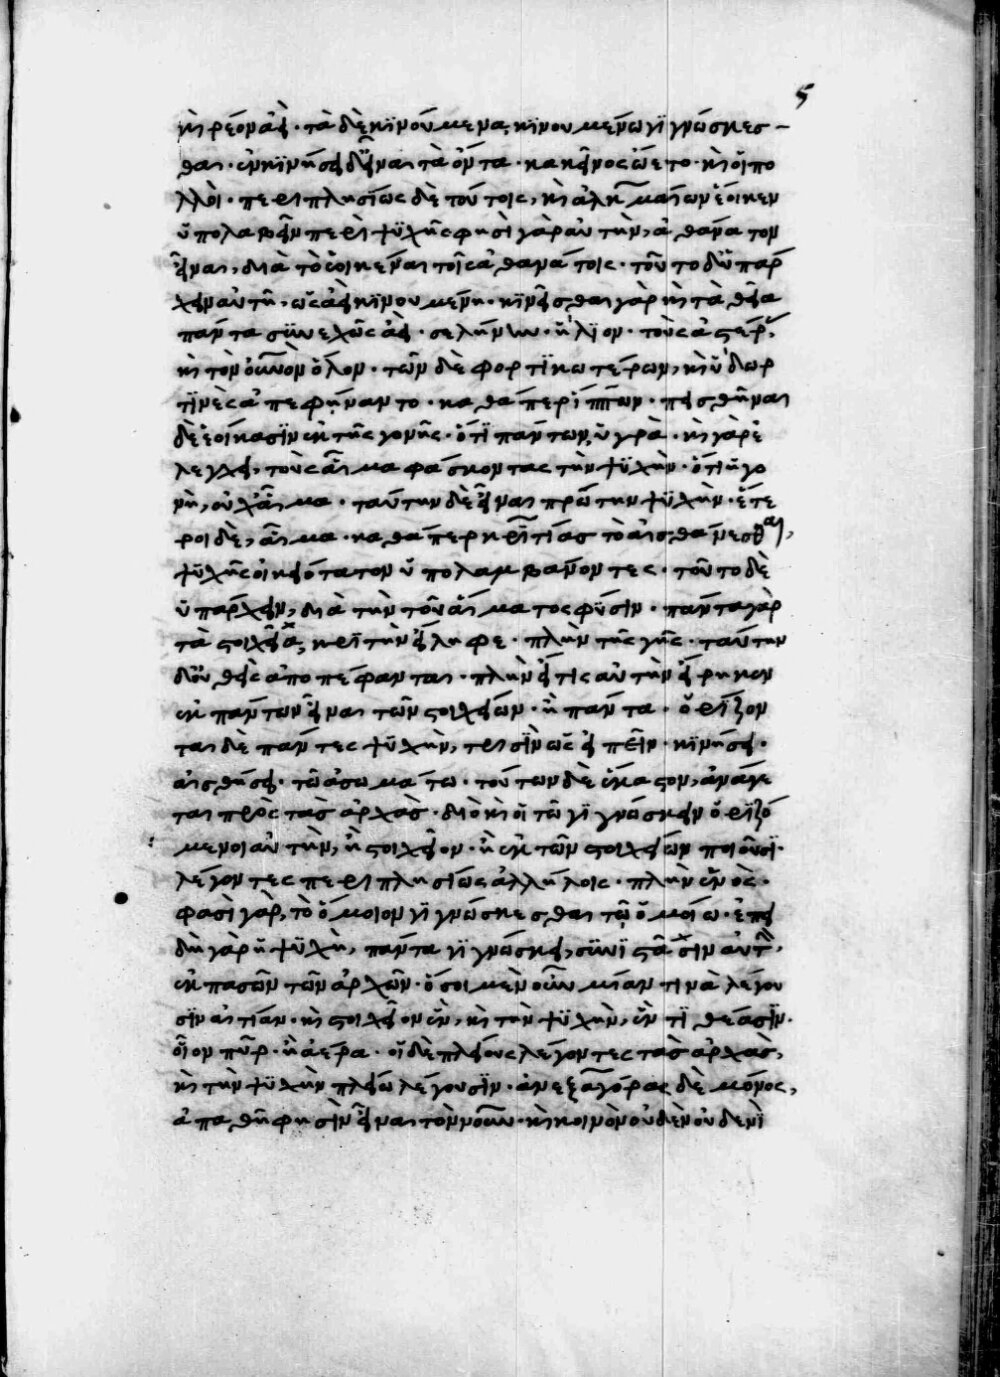 5
κὶ ρέον ἀεί · τὰ δὲ κινούμενα, κινουμένω γιγνώσκεσ-
θαι · ἐν κινήσει δ' εἶναι τὰ ὄντα · κακεῖνος ὤετο · κὶ οἱ πο
λλοὶ · περιπλησίως δὲ τούτοις, κὶ ἀλκμαίων ἔοικεν
ὑπολαβεῖν περὶ ψυχῆς φησὶ γὰρ αὐτὴν, ἀθάνατον
εἶναι, διὰ τὸ ἐοικέναι τοῖς ἀθανάτοις · τοῦτο δ' ὑπάρ
χειν αὐτῆ · ὡς ἀεὶ κινουμένη · κινεῖσθαι γὰρ κὶ τὰ θεῖα
πάντα συνεχῶς ἀεί · σελήνην · ἥλιον · τοὺς ἀστέρ
κὶ τὸν οὐνὸν ὅλον · τῶν δὲ φορτικωτέρων, κὶ ὕδωρ
τινὲς ἀπεφήναντο · καθάπερ ἵππων · πεισθῆναι
δὲ ἐοίκασιν ἐκ τῆς γονῆς · ὅτι πάντων, ὑγρὰ · κὶ γὰρ ἐ
λέγχει, τοὺς αἷμα φάσκοντας τὴν ψυχὴν · ὅτι ἡ γο
νὴ, οὐχ αἷμα · ταύτην δὲ εἶναι πρώτην ψυχὴν · ἕτε
ροι δὲ, αἷμα · καθάπερ κριτίας τὸ αἰσθάνεσθαι,
ψυχῆς οἰκειότατον ὑπολαμβάνοντες · τοῦτο δὲ
ὑπάρχειν, διὰ τὴν τοῦ αἵματος φύσιν · πάντα γὰρ
τὰ στοιχεῖα, κριτὴν εἴληφε · πλὴν τῆς γῆς · ταύτην
δ' οὐθεὶς ἀποπέφανται · πλὴν εἴ τις αὐτὴν εἴρηκεν
ἐκ πάντων εἶναι τῶν στοιχείων · ἢ πάντα · ὁρίζον
ται δὲ πάντες ψυχὴν, τρισὶν ὡς εἰπεῖν · κινήσει ·
αἰσθήσει · τῶ ἀσωμάτω · τούτων δὲ ἕκαστον, ἀνάγε
ται πρὸς τὰς ἀρχὰς · διὸ κὶ οἱ τῶ γιγνώσκειν ὁριζό
μενοι αὐτὴν, ἢ στοιχεῖον · ἢ ἐκ τῶν στοιχείων ποιοῦσι ·
λέγοντες περιπλησίως ἀλλήλοις · πλὴν ἑνὸς ·
φασὶ γὰρ, τὸ ὅμοιον γιγνώσκεσθαι τῶ ὁμοίω · ἐπει
δὴ γὰρ ἡ ψυχὴ, πάντα γιγνώσκει, συνιστᾶσιν αὐτὴν,
ἐκ πασῶν τῶν ἀρχῶν · ὅσοι μὲν οὖν μίαν τινὰ λέγου
σιν αἰτίαν · κὶ στοιχεῖον ἓν, κὶ τὴν ψυχὴν, ἕν τι θέασιν ·
οἷον πῦρ · ἢ ἀέρα · οἱ δὲ πλείους λέγοντες τὰς ἀρχὰς,
κὶ τὴν ψυχὴν πλείω λέγουσιν · ἀνεξαγόρας δὲ μόνος,
ἀπαθῆ φησὶν εἶναι τὸν νοῦν · κὶ κοινὸν οὐδὲν οὐδενὶ